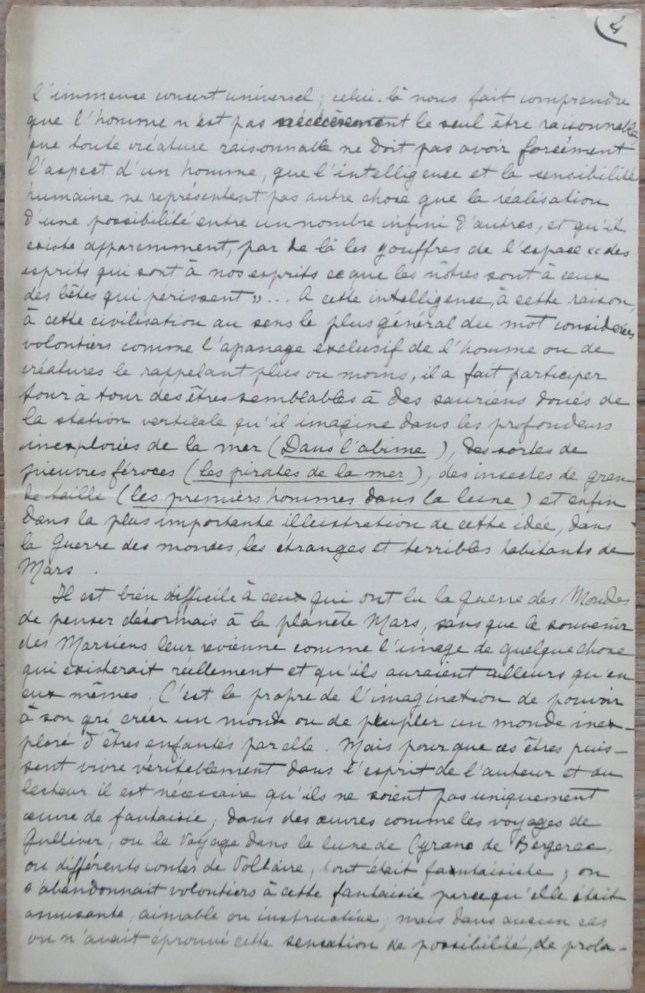 4
l'immense concert universel ; celui-là nous fait comprendre
que l'homme n'est pas nécéssairement le seul être raisonnable
que toute créature raisonnable ne doit pas avoir forcément
l'aspect d'un homme, que l'intelligence et la sensibilité
humaine ne représentent pas autre chose que la réalisation
d'une possibilité entre un nombre infini d'autres, et qu'il
existe apparemment, par de là les gouffres de l'espace « des
esprits qui sont à nos esprits ce que les nôtres sont à ceux
des bêtes qui périssent »... A cette intelligence, à cette raison,
à cette civilisation au sens le plus général du mot considérées
volontiers comme l'apanage exclusif de l'homme ou de
créatures le rappelant plus ou moins, il a fait participer
tour à tour des êtres semblables à des sauriens doués de
la station verticale qu'il imagine dans les profondeurs
inexplorées de la mer (Dans l'abime), des sortes de
pieuvres féroces (les pirates de la mer), des insectes de gran-
de taille (les premiers hommes dans la lune) et enfin
dans la plus importante illustration de cette idée, dans
la Guerre des mondes, les étranges et terribles habitants de
Mars.
Il est bien difficile à ceux qui ont lu la guerre des Mondes
de penser désormais à la planète Mars, sans que le souvenir
des Marsiens leur revienne comme l'image de quelque chose
qui existerait réellement et qu'ils auraient ailleurs qu'en
eux mêmes. C'est le propre de l'imagination de pouvoir
à son gré créer un monde ou de peupler un monde inex-
ploré d'êtres enfantés par elle. Mais pour que ces êtres puis-
sent vivre véritablement dans l'esprit de l'auteur et du
lecteur il est nécessaire qu'ils ne soient pas uniquement
œuvre de fantaisie ; dans des œuvres comme les voyages de
Gulliver, ou le Voyage dans la lune de Cyrano de Bergerac,
ou différents contes de Voltaire, tout était fantaisiste ; on
s'abandonnait volontiers à cette fantaisie parce qu'elle était
amusante, aimable ou instructive, mais dans aucun cas
on n'avait éprouvé cette sensation de possibilité, de proba-